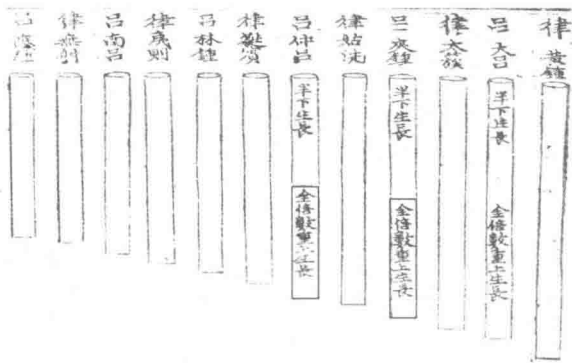 律 黃鍾
呂 大呂
半下生長
全倍數重上生長
律 太蔟
呂 夾鍾
半下生長
全倍數重上生長
律 姑洗
呂 仲呂
半下生長
全倍數重上生長
律 蕤賓
呂 林鍾
律 夷則
呂 南呂
律 無射
呂 應鍾